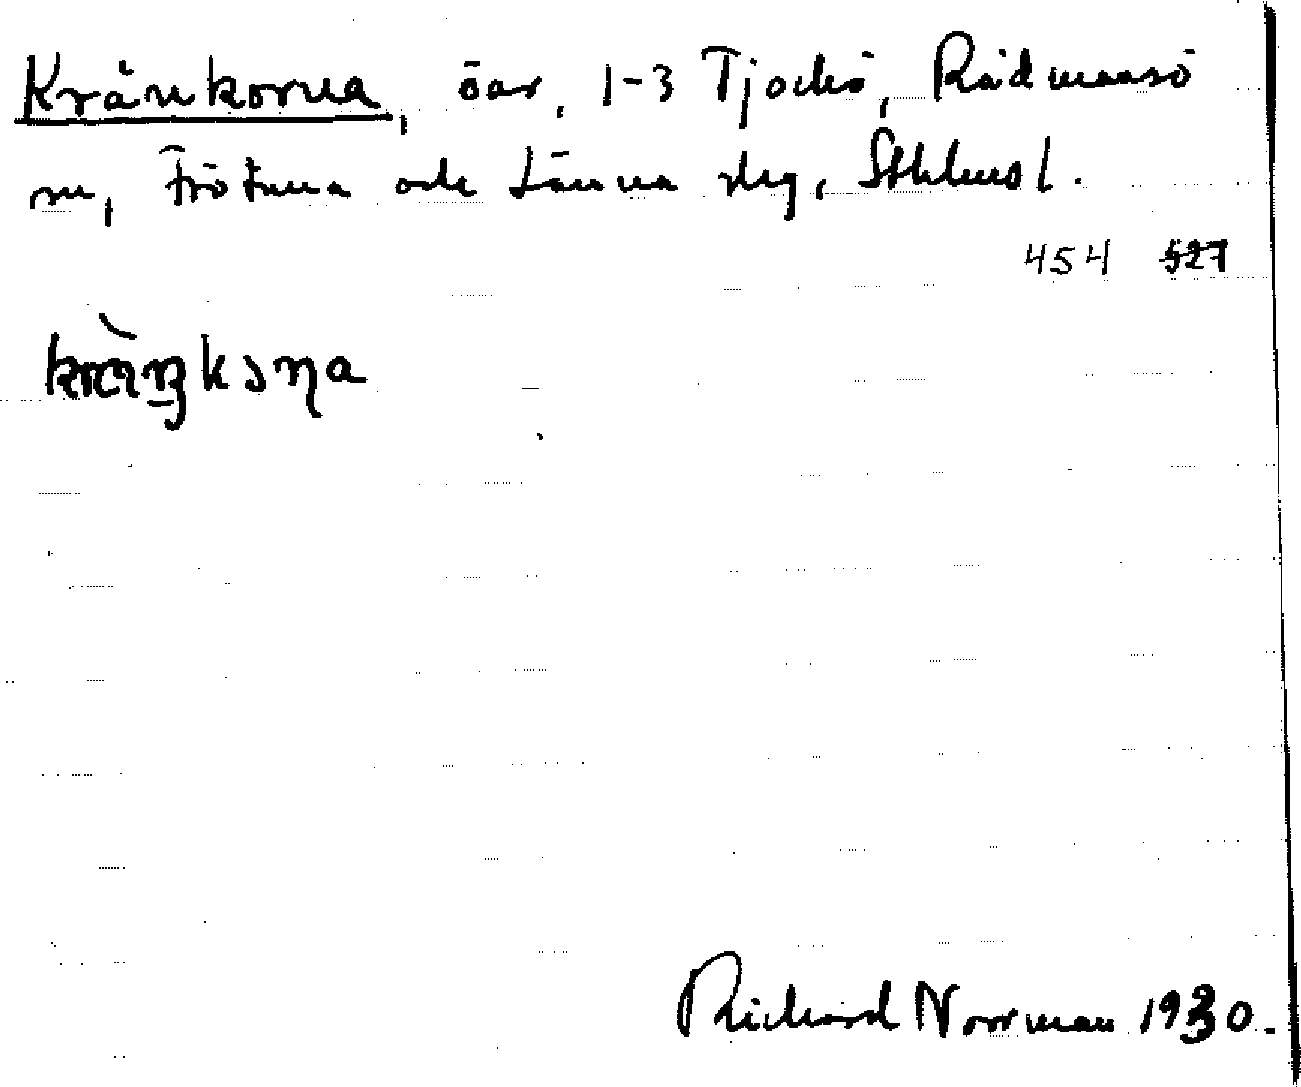 Kränkorna, öar, 1-3 Tjockö, Rådmansö
sn, Frötuna och Länna slg, Sthlms l.
454 527
kràŋkɔɳa
Richard Norrman 1930.